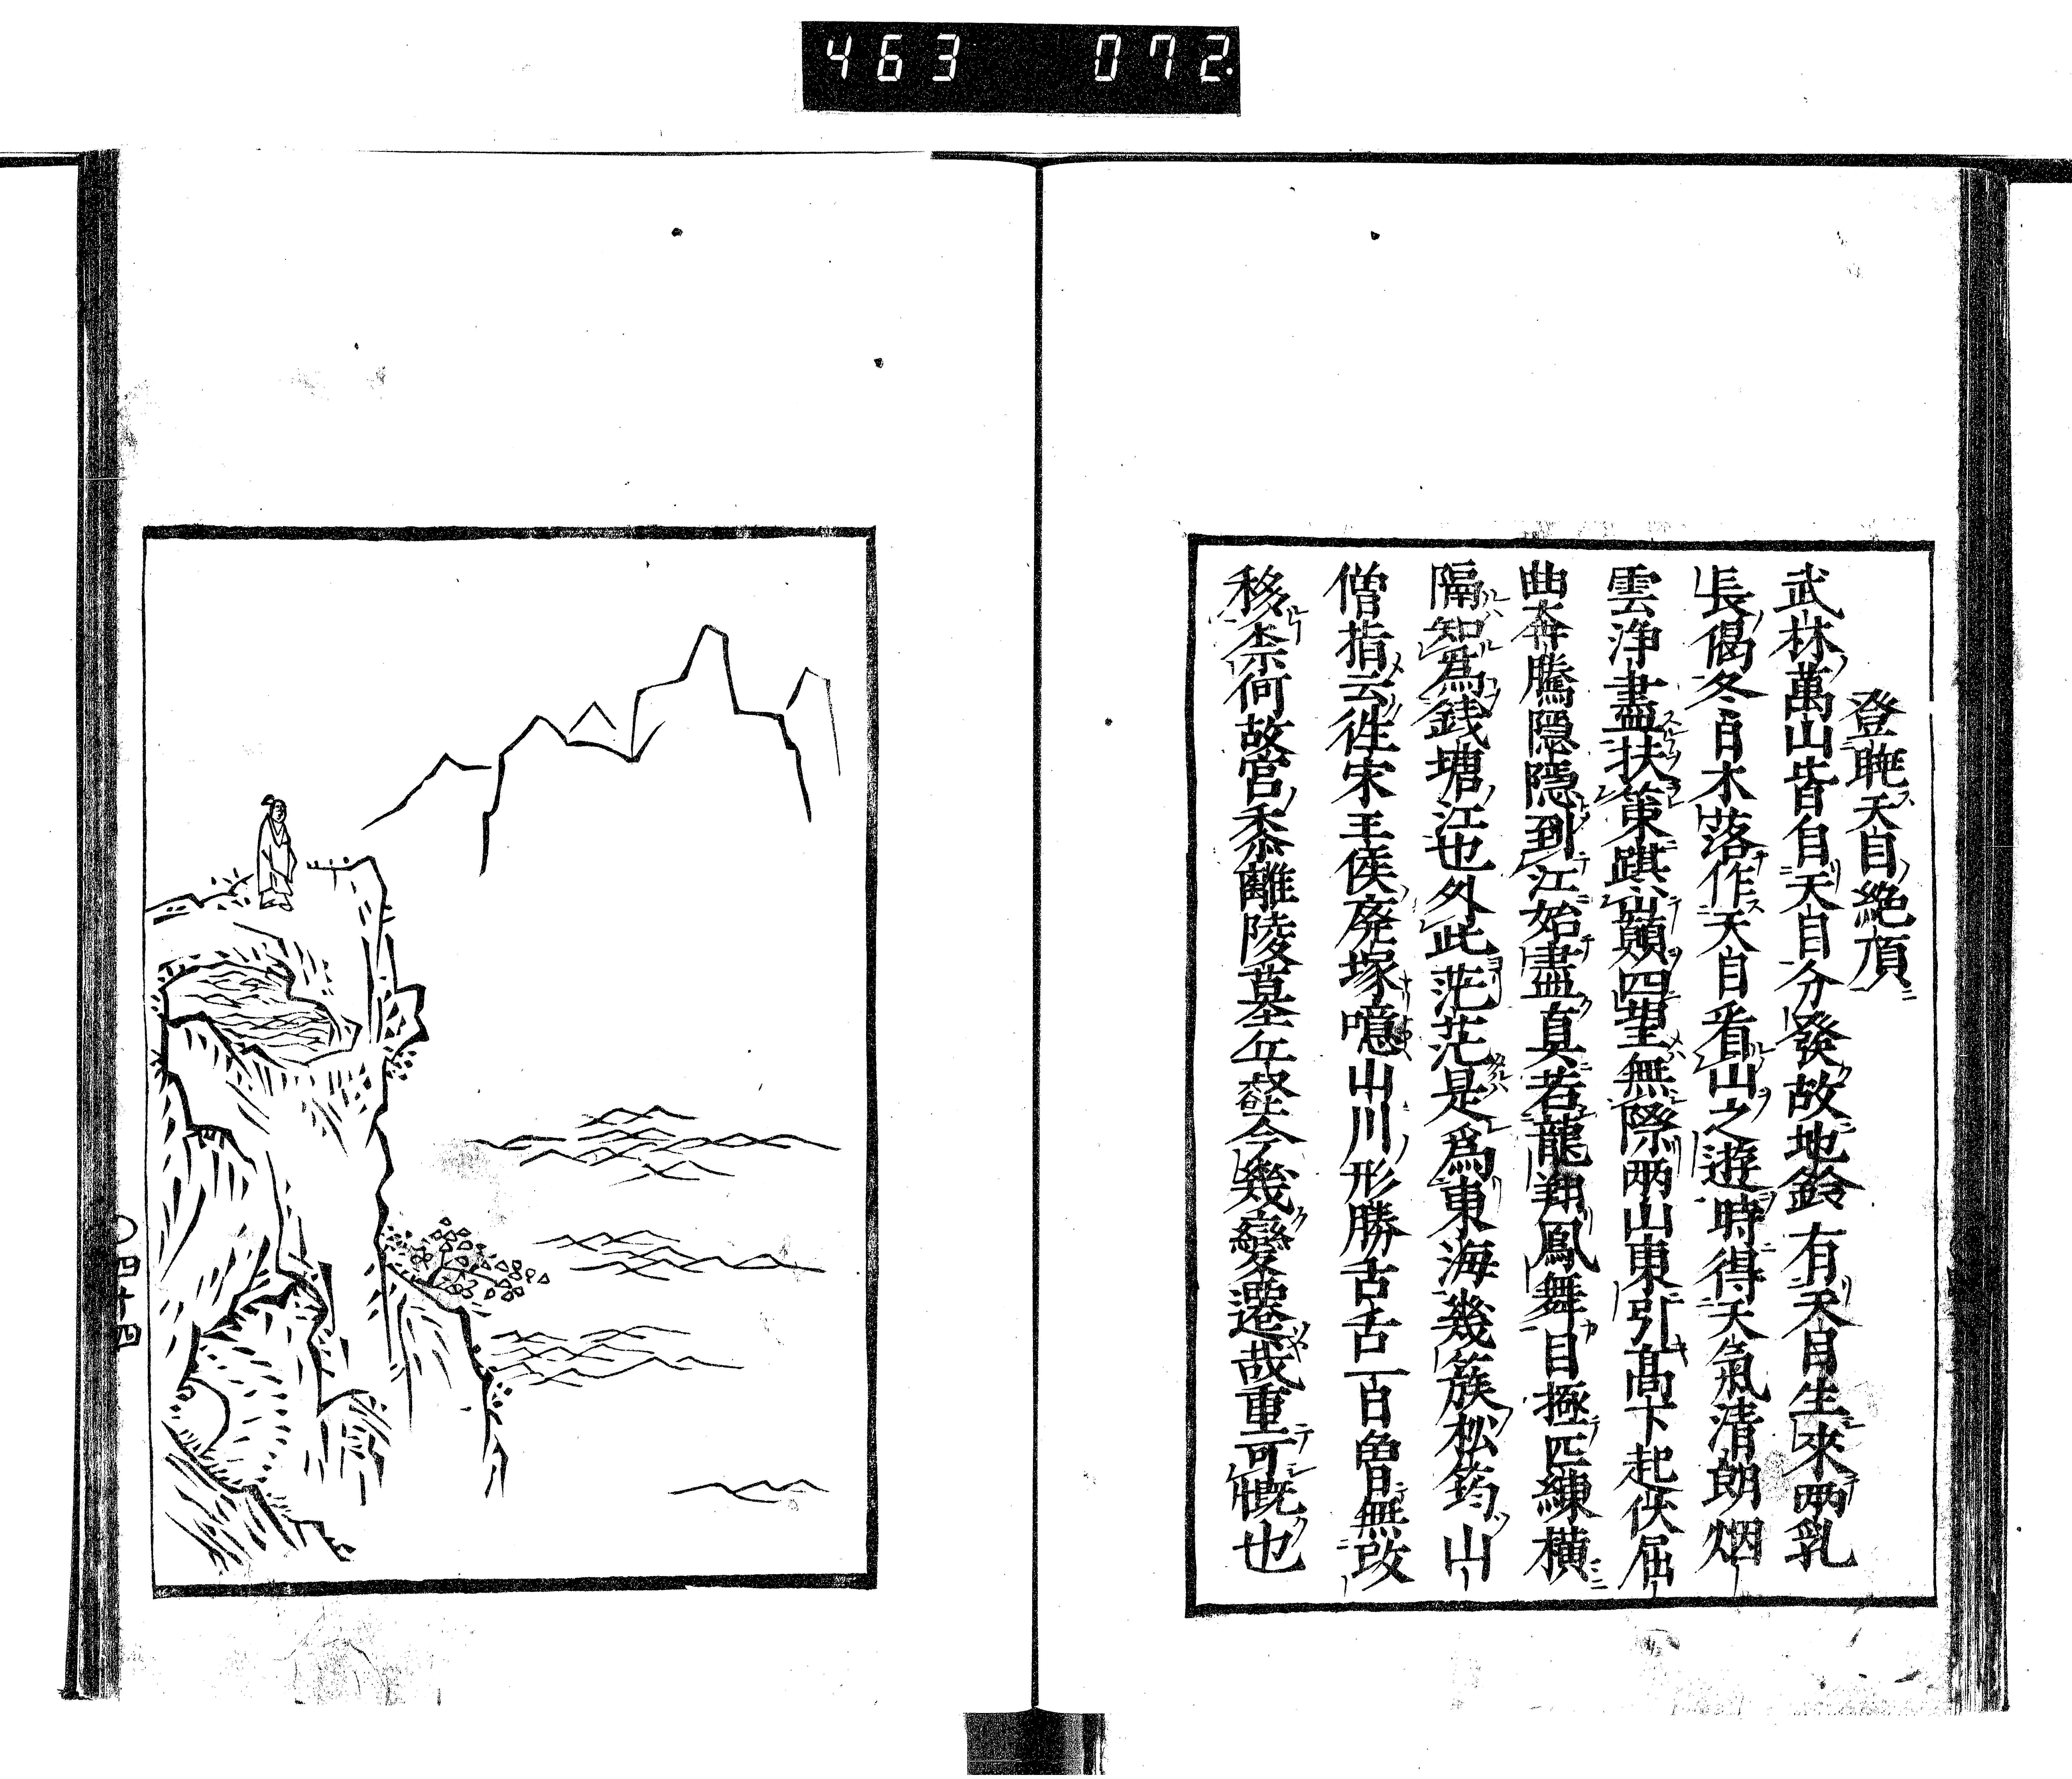 463 072
登眺天目絶頂
武林萬山皆自天目分發故地鈐有天目生來兩乳
長偈冬日木落作天目看山之遊時得天氣清朗烟
雲浄盡扶策躋巔四望無際兩山東引髙下起伏屈
曲奔騰隱隱到江始盡真若龍翔鳳舞目極匹練横
隔知爲錢塘江也外此茫茫是爲東海幾簇松筠山
僧指云徃宋王侯廢塚噫山川形勝古舌一百魯無改
移柰何故宫黍離陵墓丘壑今幾變遷哉重可慨也
〇四十四